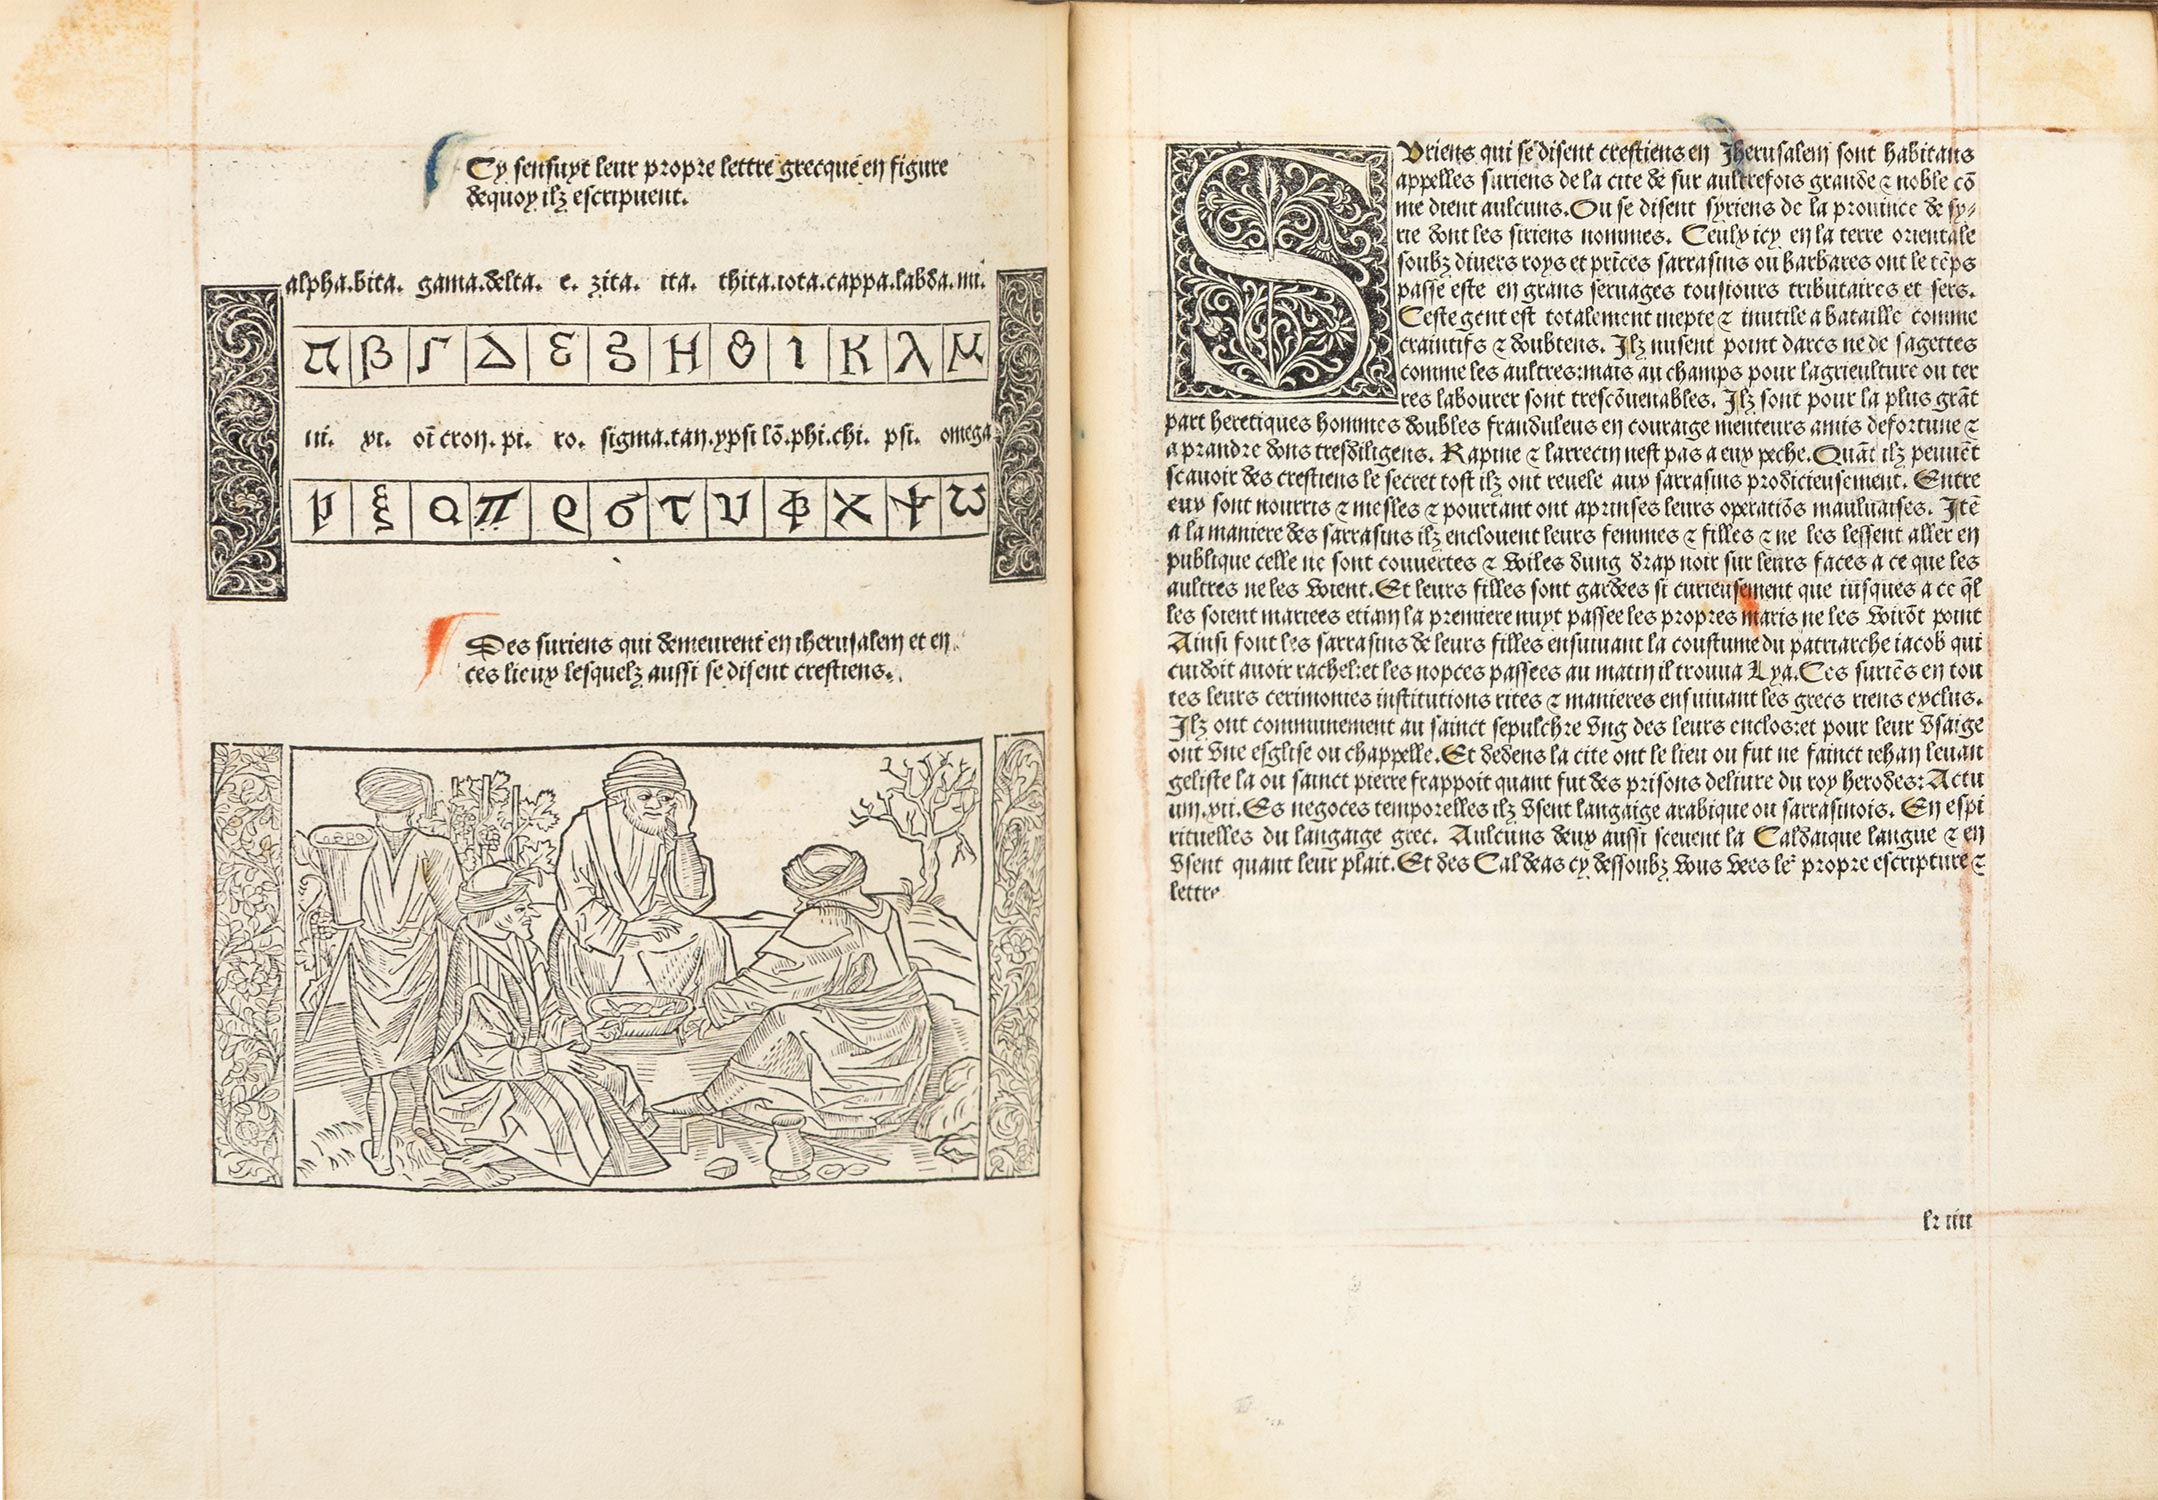 Cy sensuyt leur propre lettre grecque en figure
dequoy ilz escripuent.
alpha. bita. gama. delta. e. zita. ita. thita. iota. cappa. labda. mi.
α β Γ Δ ε ξ H θ ι κ λ μ
ni. xi. oi cron. pi. ro. sigma. tau. ypsi lõ. phi. chi. psi. omega
ν ξ ο π ρ σ τ υ φ χ ψ ω
Des suriens qui demeurent en iherusalem et en
ces lieux lesquelz aussi se disent crestiens.
SUriens qui se disent crestiens en Jherusalem sont habitans
appelles suriens de la cite de sur aultrefois grande ⁊ noble cõ
me dient aulcuns. Ou se disent syriens de la prouince de sy⸗
rie dont les siriens nommes. Ceulx icy en la terre orientale
soubz diuers roys et prīces sarrasins ou barbares ont le tēps
passe este en grans seruages tousiours tributaires et sers.
Ceste gent est totalement inepte ⁊ inutile a bataille comme
craintifs ⁊ doubteus. Ilz nusent point darcs ne de sagettes
comme les aultres: mais au champs pour lagriculture ou ter
res labourer sont trescõuenables. Ilz sont pour la plus grãt
part heretiques hommes doubles frauduleus en couraige menteurs amis de fortune ⁊
a prandre dons tresdiligens. Rapine ⁊ larrecin nest pas a eux peche. Quãt ilz peuuẽt
scauoir des crestiens le secret tost ilz ont reuele aux sarrasins prodicieusement. Entre
eux sont nourris ⁊ mesles ⁊ pourtant ont aprinses leurs operatiõs mauluaises. Itẽ
a la maniere des sarrasins ilz enclouent leurs femmes ⁊ filles ⁊ ne les lessent aller en
publique celle ne sont couuertes ⁊ voiles dung drap noir sur leurs faces a ce que les
aultres ne les voient. Et leurs filles sont gardees si curieusement que iusques a ce q̃l
les soient mariees etiam la premiere nuyt passee les propres maris ne les virõt point
Ainsi font les sarrasins de leurs filles ensuiuant la coustume du patriarche iacob qui
cuidoit auoir rachel: et les nopces passees au matin il trouua Lya. Ces suriẽs en tou
tes leurs cerimonies institutions rites ⁊ manieres ensuiuant les grecs riens exclus.
Ilz ont communement au sainct sepulchre vng des leurs enclos: et pour leur vsaige
ont vne esglise ou chappelle. Et dedens la cite ont le lieu ou fut ne sainct iehan leuan
geliste la ou sainct pierre frappoit quant fut des prisons deliure du roy herodes: Actu
um. xii. Es negoces temporelles ilz vsent langaige arabique ou sarrasinois. En espi
rituelles du langaige grec. Aulcuns deux aussi sceuent la Caldaique langue ⁊ en
vsent quant leur plait. Et des Caldeas cy dessoubz vous vees le propre escripture ⁊
lettre